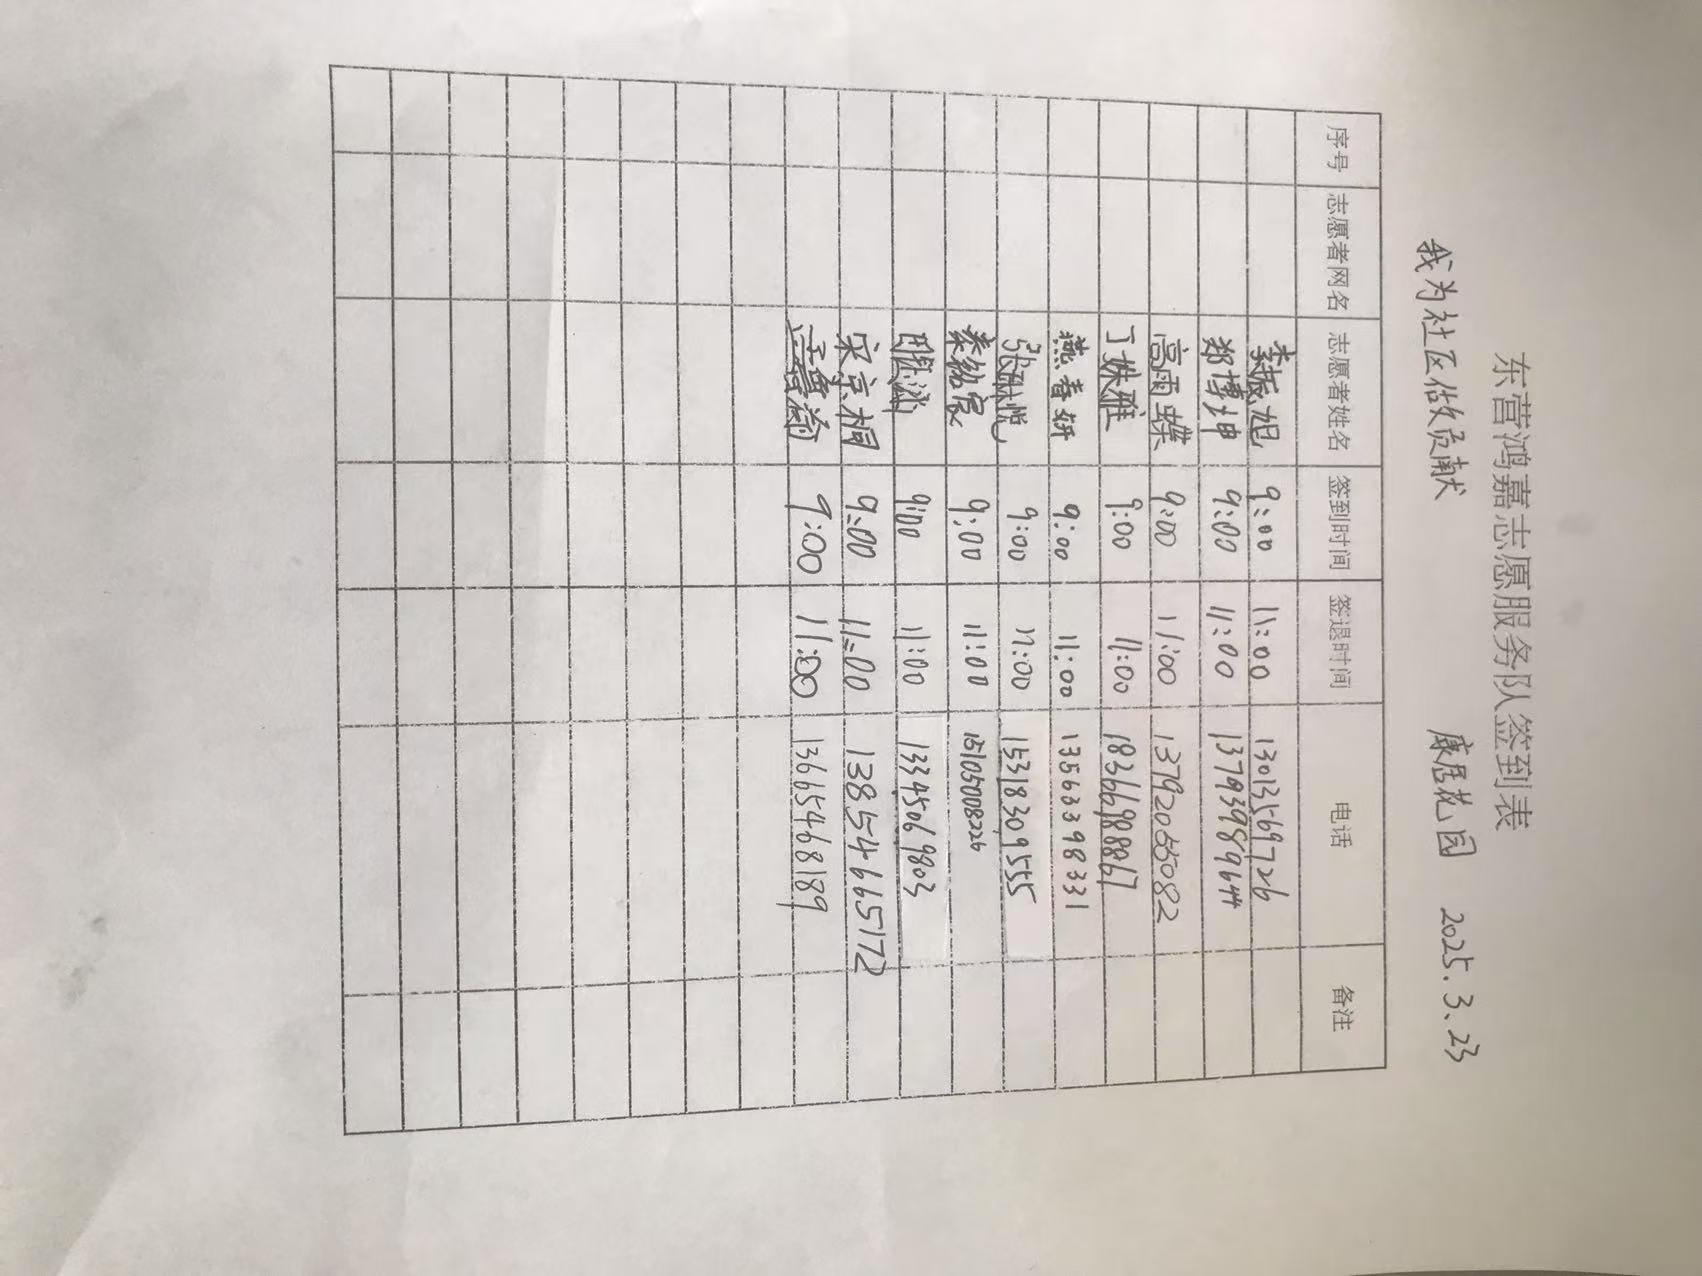 东营鸿嘉志愿服务队签到表
我为社区做贡献 康居花园 2025.3.23
序号 志愿者网名 志愿者姓名 签到时间 签退时间 电话 备注
李振旭 9:00 11:00 13013569726
郑博坤 9:00 11:00 13793989644
高雨蝶 9:00 11:00 13792055082
丁姝雅 9:00 11:00 18366988867
燕春妍 9:00 11:00 13563398331
张酥悦 9:00 11:00 15318309555
秦铭宸 9:00 11:00 15105008226
9:00 11:00 13345069803
宋京桐 9:00 11:00 13854665172
9:00 11:00 13665468189